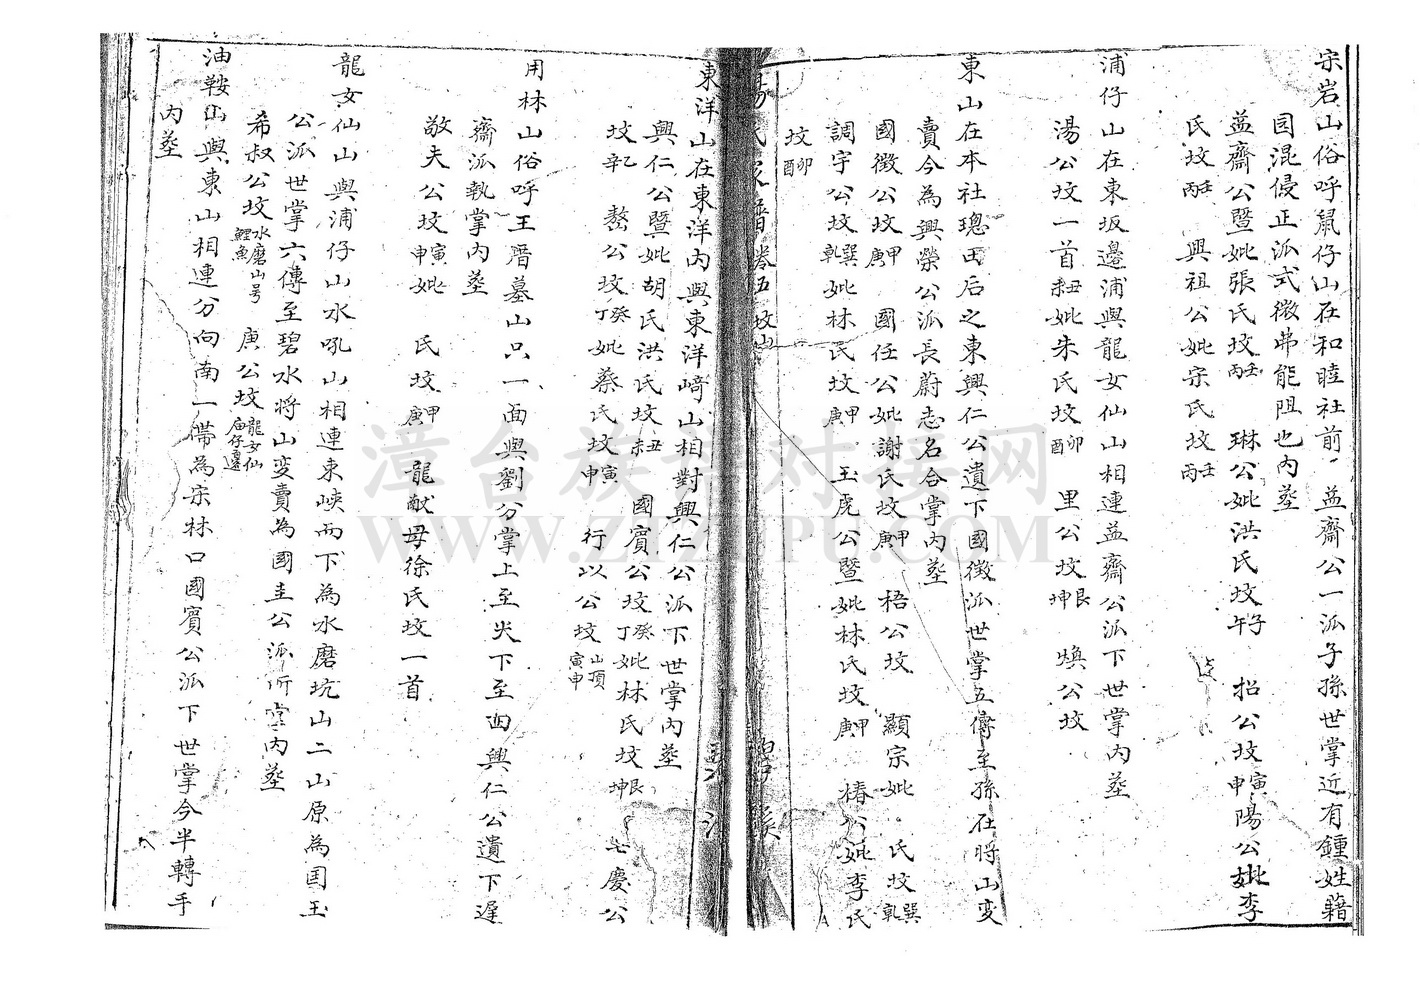 宗岩山俗呼鼠仔山在和睦社前益齋公一派子孫世掌近有鍾姓藉
因混侵正派式微弗能阻也內塋
益齋公暨妣張氏坟壬丙 琳公妣洪氏坟子午 招公坟寅申 陽公妣李
氏坟壬丙 興祖公妣宗氏坟壬丙
浦仔山在東坂邊浦與龍女仙山相連益齋公派下世掌內塋
湯公坟一首丑未 妣朱氏坟卯酉 里公坟艮坤 煥公坟
東山在本社璁田后之東興仁公遺下國徵派世掌五傳至孫在將山变
賣今為興榮公派長蔚志名合掌內塋
國徵公坟甲庚 國任公妣謝氏坟甲庚 梧公坟 顯宗妣 氏坟巽乾
調宇公坟巽乾 妣林氏坟甲庚 玉虎公暨妣林氏坟甲庚 椿公妣李氏
坟卯酉
湯氏家譜卷五坟山
東洋山在東洋內與東洋﨑山相對興仁公派下世掌內塋
興仁公暨妣胡氏洪氏坟丑未 國賓公坟癸丁 妣林氏坟艮坤 七慶公
坟辛乙 嶅公坟癸丁 妣蔡氏坟寅申 行以公坟山頂寅申
用林山俗呼王厝墓山只一面與劉分掌上至尖下至凹興仁公遺下遲
齋派執掌內塋
敬夫公坟寅申 妣 氏坟甲庚 龍猷母徐氏坟一首
龍女仙山與浦仔山水吼山相連東峽而下為水磨坑山二山原為国玉
公派世掌六傳至碧水將山变賣為國圭公派所掌內塋
希叔公坟水磨山号鯉魚 庚公坟龍女仙庙仔邊
油鞍山與東山相連分向南一帶為宗林口國賓公派下世掌今半轉手
內塋
漳台族谱对接网
WWW.ZTZUPU.COM